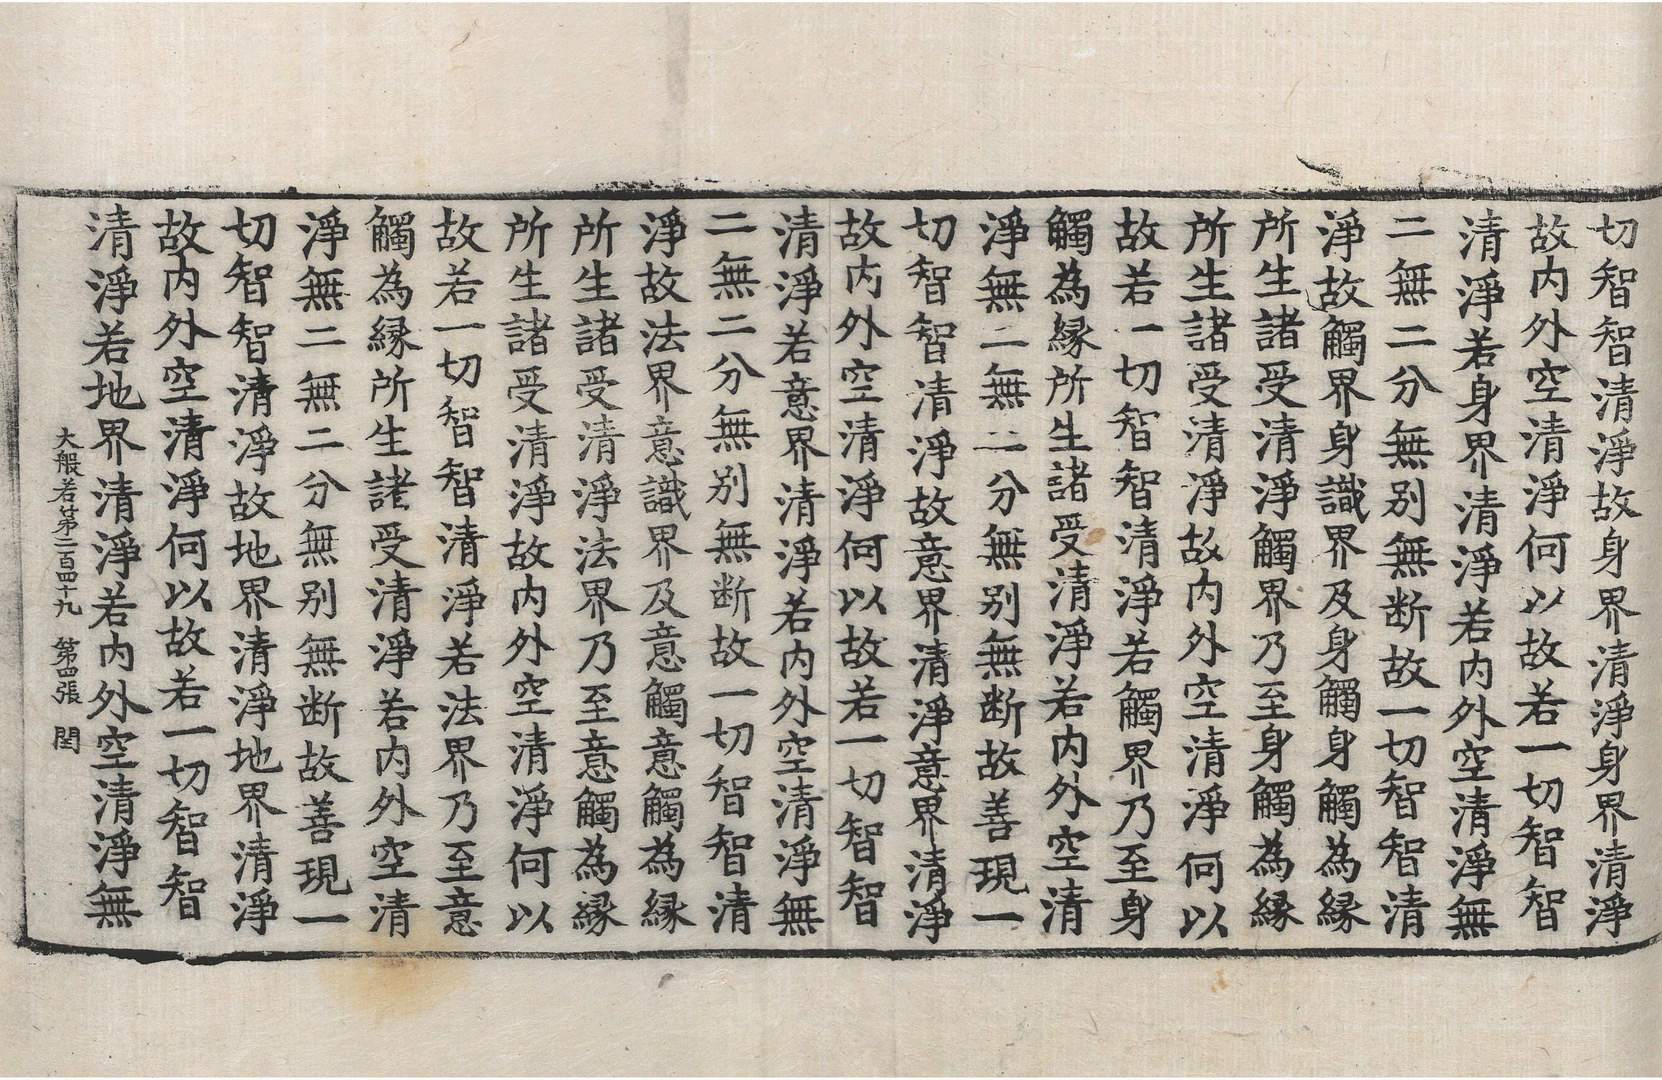 切智智清淨故身界清淨身界清淨
故内外空清淨何以故若一切智智
清淨若身界清淨若内外空清淨無
二無二分無別無断故一切智智清
淨故觸界身識界及身觸身觸為縁
所生諸受清淨觸界乃至身觸為縁
所生諸受清淨故内外空清淨何以
故若一切智智清淨若觸界乃至身
觸為縁所生諸受清淨若内外空清
淨無二無二分無別無断故善現一
切智智清淨故意界清淨意界清淨
故内外空清淨何以故若一切智智
清淨若意界清淨若内外空清淨無
二無二分無別無断故一切智智清
淨故法界意識界及意觸意觸為縁
所生諸受清淨法界乃至意觸為縁
所生諸受清淨故内外空清淨何以
故若一切智智清淨若法界乃至意
觸為縁所生諸受清淨若内外空清
淨無二無二分無別無断故善現一
切智智清淨故地界清淨地界清淨
故内外空清淨何以故若一切智智
清淨若地界清淨若内外空清淨無
大般若第二百四十九 第四張 閏